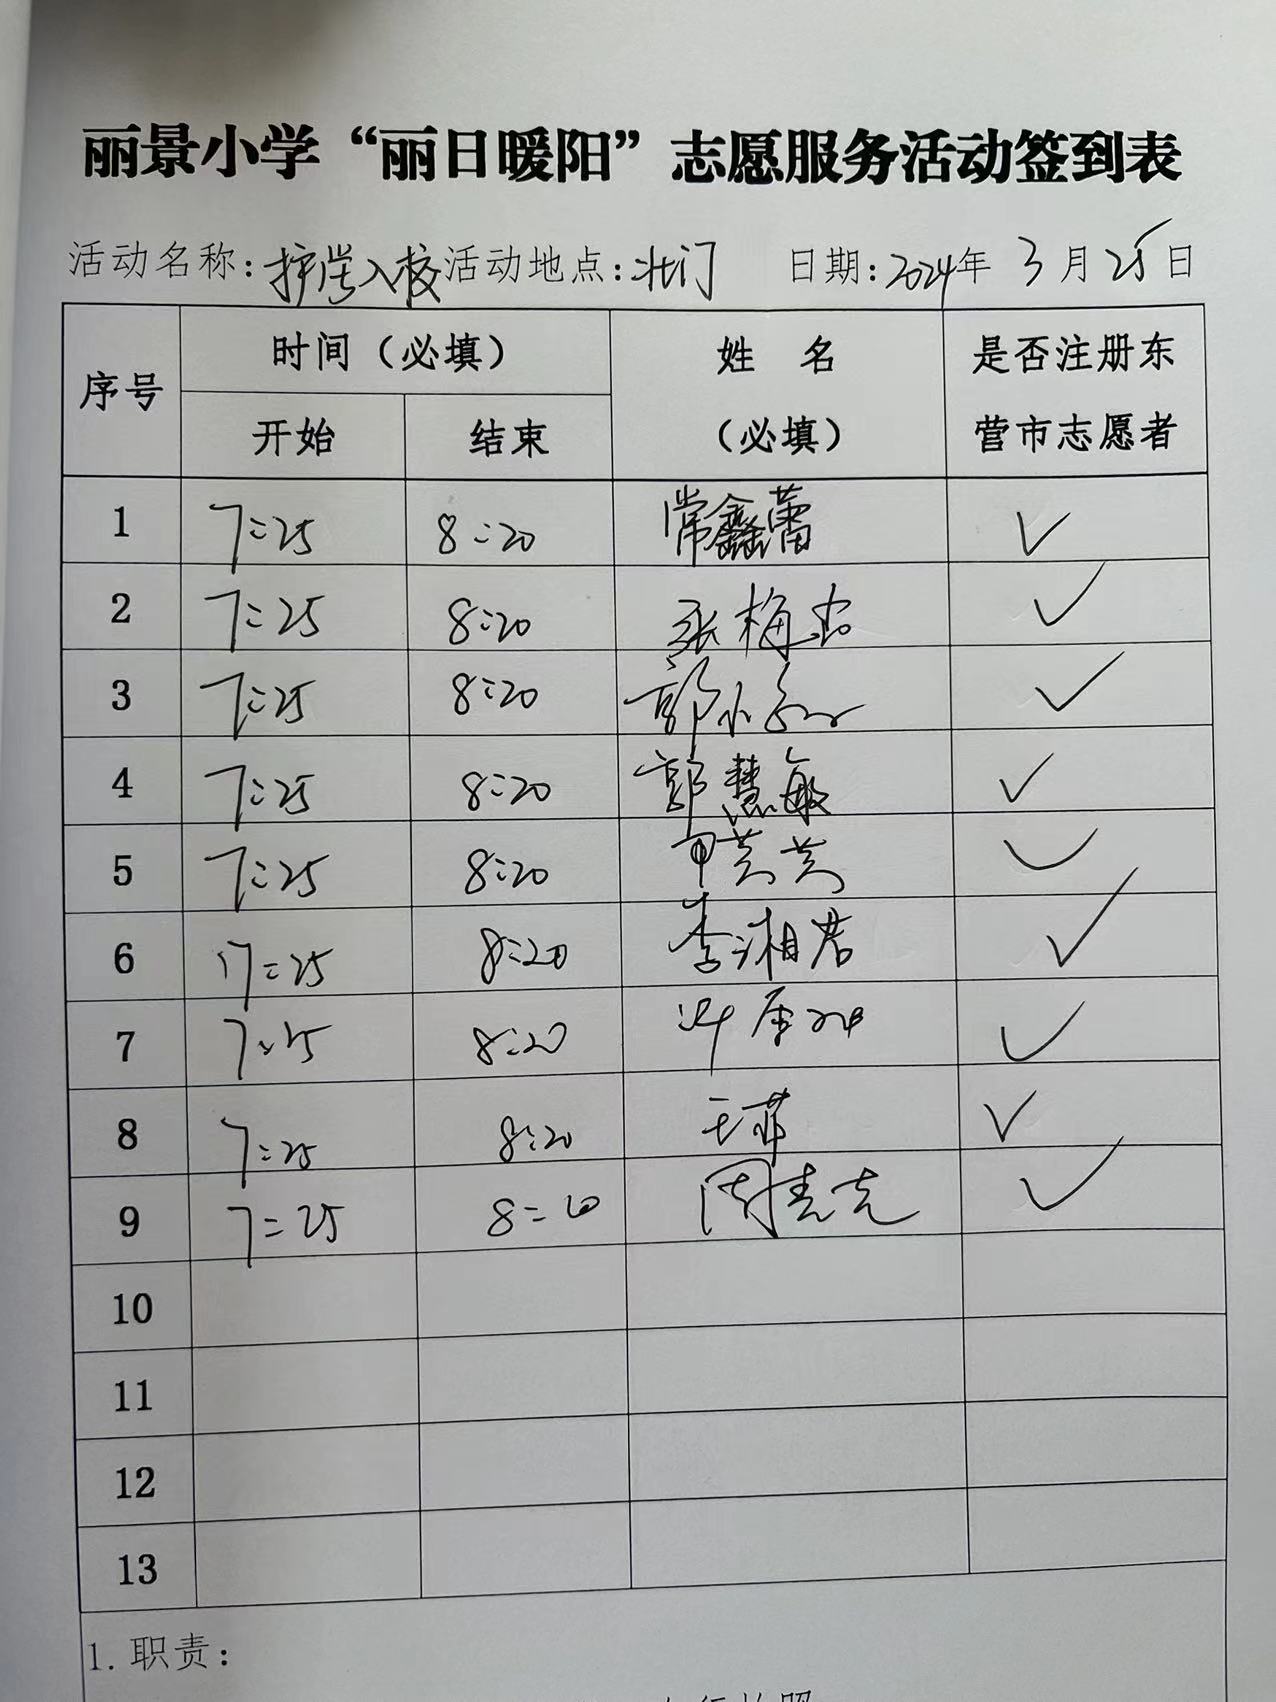 丽景小学“丽日暖阳”志愿服务活动签到表
活动名称:护学入校 活动地点:北门 日期:2024年 3月25日
序号 时间（必填） 姓 名（必填） 是否注册东营市志愿者
开始 结束
1 7:25 8:20 常鑫蕾 ✓
2 7:25 8:20 张梅 ✓
3 7:25 8:20 郭小 ✓
4 7:25 8:20 郭慧敏 ✓
5 7:25 8:20 ✓
6 17:25 8:20 李湘君 ✓
7 7:25 8:20 ✓
8 7:25 8:20 王菲 ✓
9 7:25 8:20 周 ✓
10
11
12
13
1.职责：